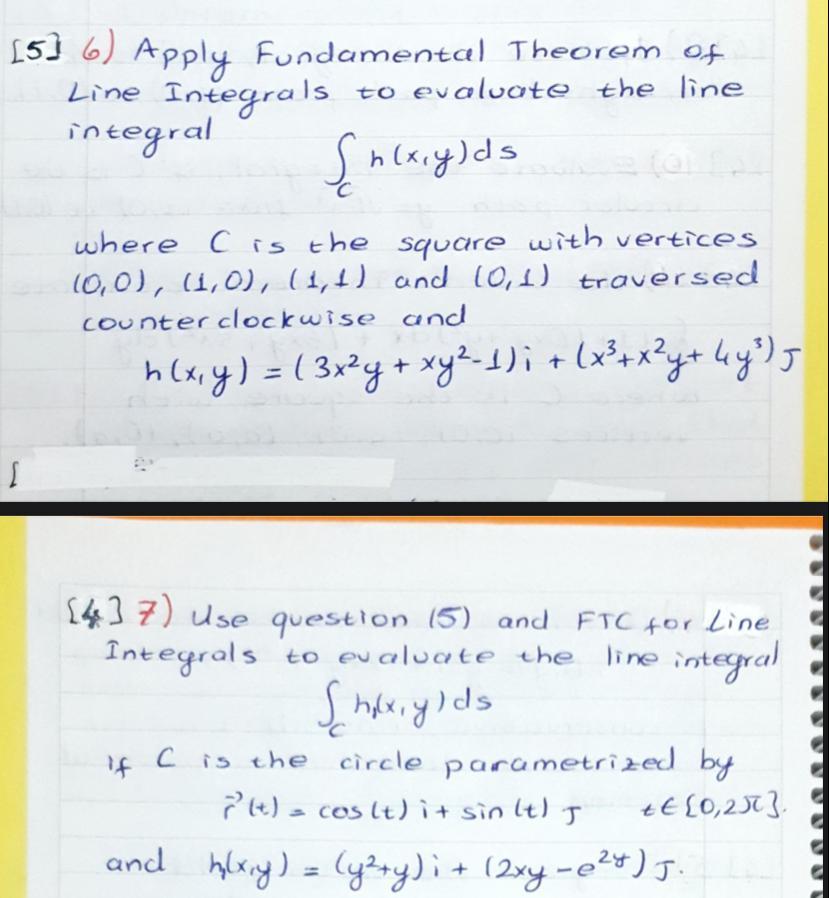 [5] 6) Apply Fundamental Theorem of
Line Integrals to evaluate the line
integral
∫_C h(x,y)ds
where C is the square with vertices
(0,0), (1,0), (1,1) and (0,1) traversed
counterclockwise and
h(x,y) = (3x²y + xy²-1)i + (x³+x²y+4y³)J
[
[4] 7) Use question (5) and FTC for Line
Integrals to evaluate the line integral
∫_C h(x,y)ds
if C is the circle parametrized by
r⃗(t) = cos(t) i + sin(t) J t∈[0,2π].
and h(x,y) = (y²+y)i + (2xy-e^{2y})J.